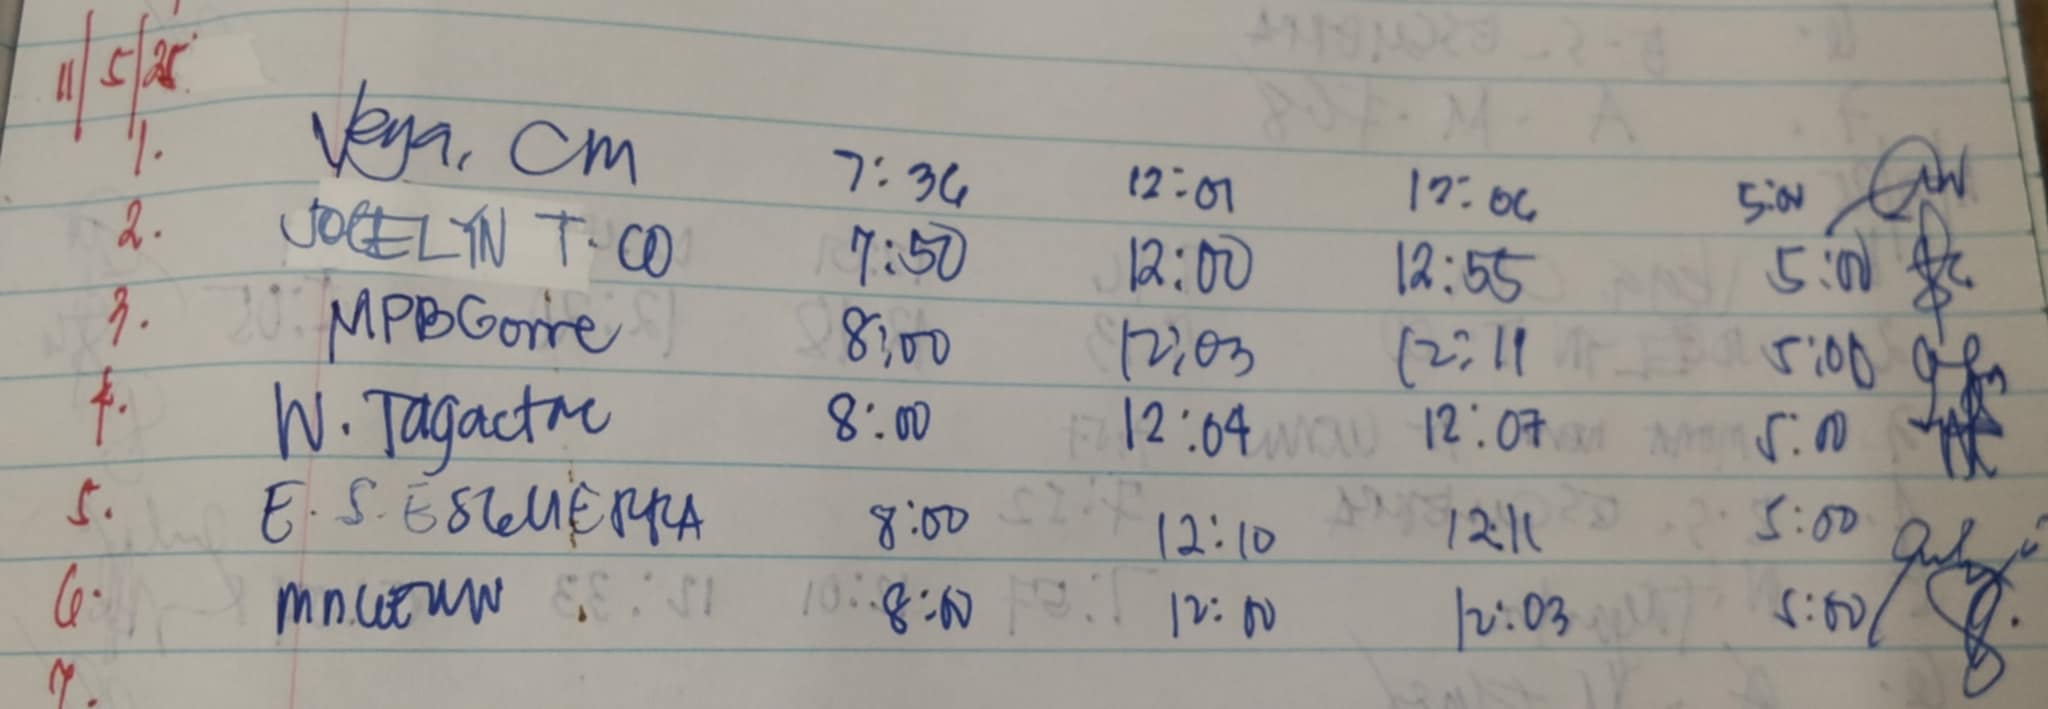 11/5/25
1. Vega, CM 7:36 12:01 12:06 5:00
2. JOCELYN T. CO 7:50 12:00 12:55 5:00
3. MPBGorre 8:00 12:03 12:11 5:00
4. W. Tagactac 8:00 12:04 12:07 5:00
5. E. S. ESGUERRA 8:00 12:10 12:11 5:00
6. 8:00 12:00 12:03 5:00
7.